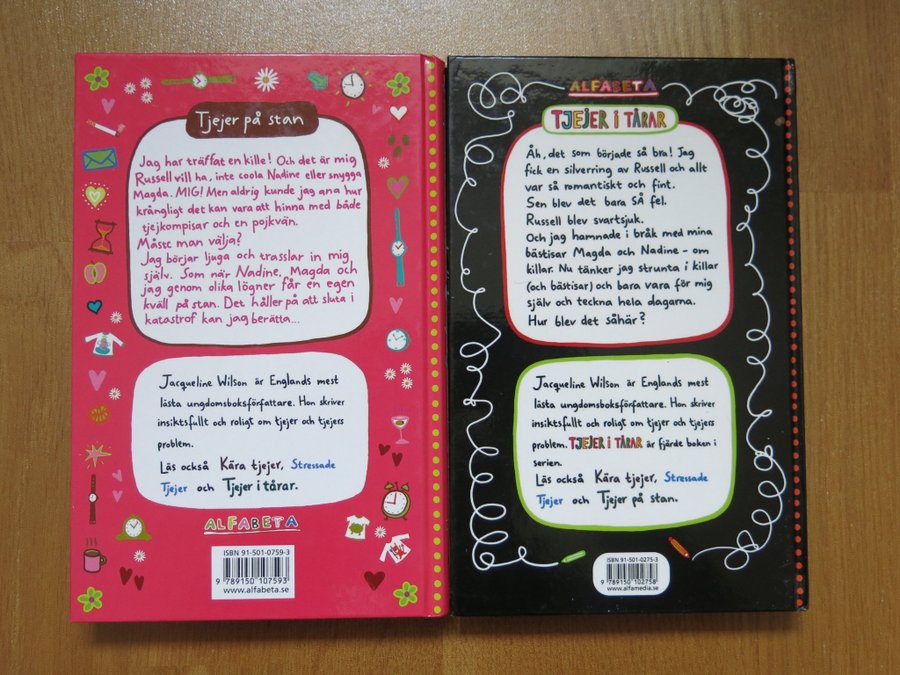 Tjejer på stan
Jag har träffat en kille! Och det är mig
Russell vill ha, inte coola Nadine eller snygga
Magda. MIG! Men aldrig kunde jag ana hur
krångligt det kan vara att hinna med både
tjejkompisar och en pojkvän.
Måste man välja?
Jag börjar ljuga och trasslar in mig
själv. Som när Nadine, Magda och
jag genom olika lögner får en egen
kväll på stan. Det håller på att sluta i
katastrof kan jag berätta...
Jacqueline Wilson är Englands mest
lästa ungdomsboksförfattare. Hon skriver
insiktsfullt och roligt om tjejer och tjejers
problem.
Läs också Kära tjejer, Stressade
Tjejer och Tjejer i tårar.
ALFABETA
ISBN 91-501-0759-3
9 789150 107593
www.alfabeta.se
ALFABETA
TJEJER I TÅRAR
Åh, det som började så bra! Jag
fick en silverring av Russell och allt
var så romantiskt och fint.
Sen blev det bara SÅ fel.
Russell blev svartsjuk.
Och jag hamnade i bråk med mina
bästisar Magda och Nadine - om
killar. Nu tänker jag strunta i killar
(och bästisar) och bara vara för mig
själv och teckna hela dagarna.
Hur blev det såhär?
Jacqueline Wilson är Englands mest
lästa ungdomsboksförfattare. Hon skriver
insiktsfullt och roligt om tjejer och tjejers
problem. TJEJER I TÅRAR är fjärde boken i
serien.
Läs också Kära tjejer, Stressade
Tjejer och Tjejer på stan.
ISBN 91-501-0275-3
9 789150 102758
www.alfamedia.se